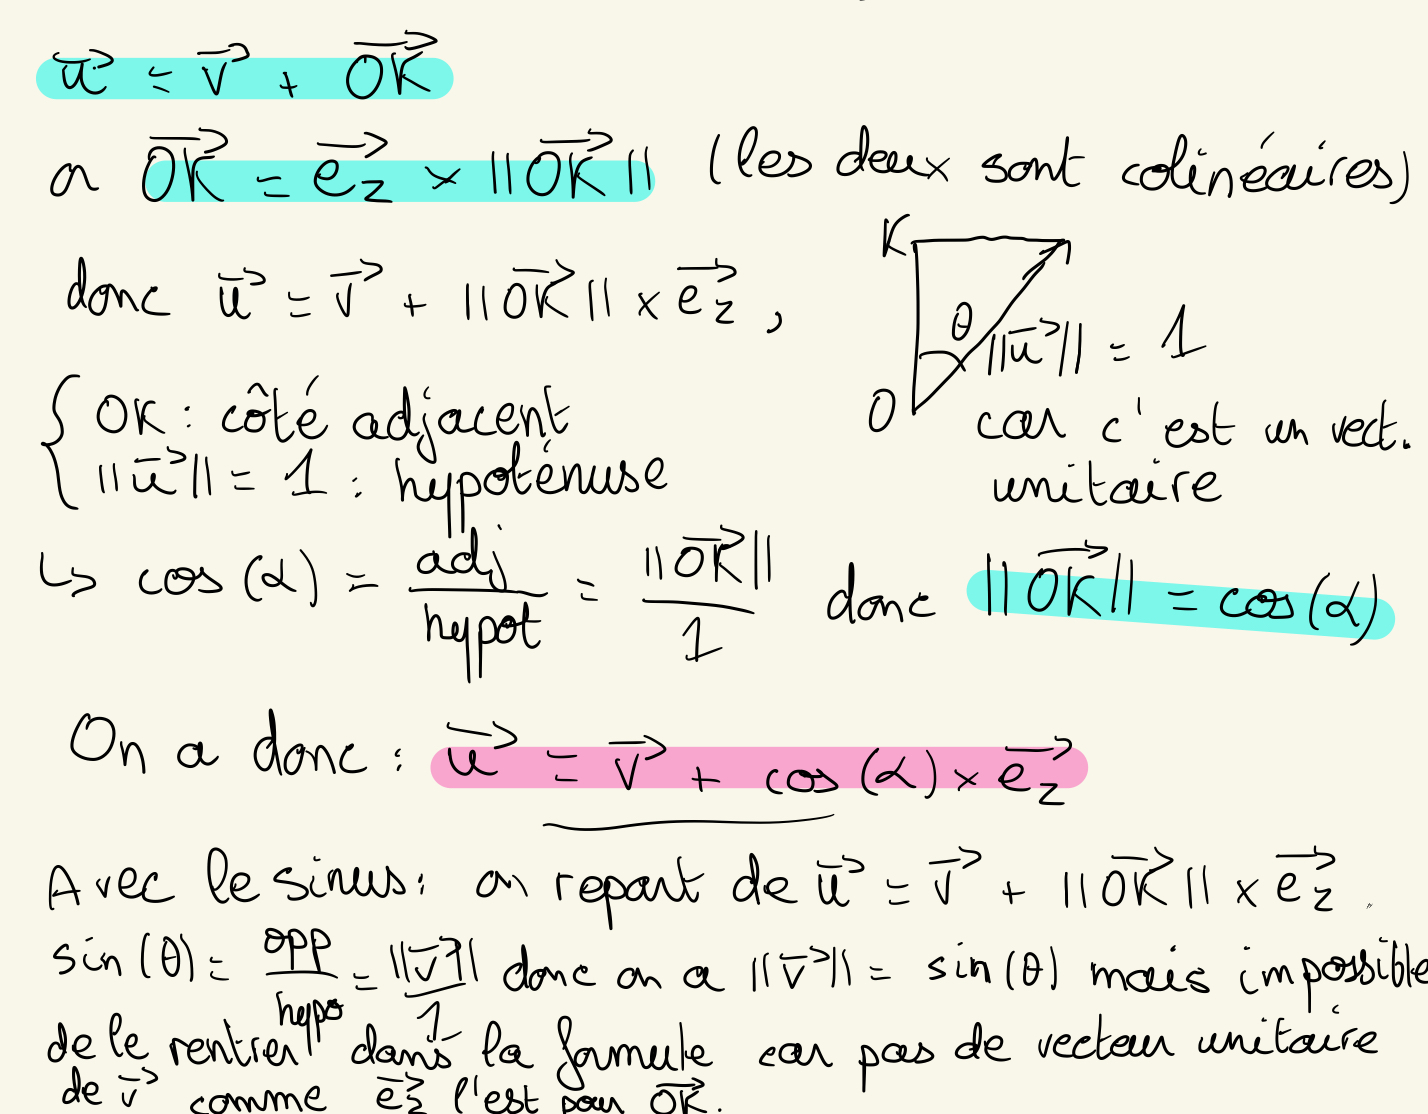 u⃗ = v⃗ + OK⃗
on OK⃗ = e_z⃗ × ||OK⃗|| (les deux sont colinéaires)
donc u⃗ = v⃗ + ||OK⃗|| × e_z⃗ ,
K
θ
O
||u⃗|| = 1
car c'est un vect.
unitaire
{ OK : côté adjacent
||u⃗|| = 1 : hypoténuse
↳ cos(α) = adj/hypot = ||OK⃗||/1 donc ||OK⃗|| = cos(α)
On a donc : u⃗ = v⃗ + cos(α) × e_z⃗
Avec le sinus : on repart de u⃗ = v⃗ + ||OK⃗|| × e_z⃗.
sin(θ) = opp/hypo = ||v⃗||/1 donc on a ||v⃗|| = sin(θ) mais impossible
de le rentrer dans la formule car pas de vecteur unitaire
de v⃗ comme e_z⃗ l'est pour OK⃗.